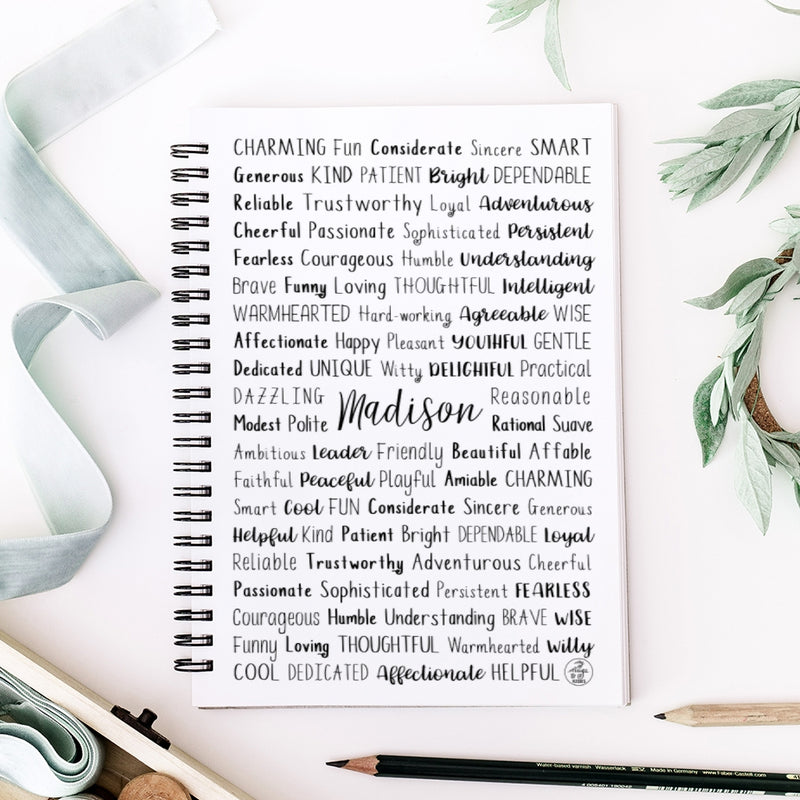 CHARMING Fun Considerate Sincere SMART
Generous KIND PATIENT Bright DEPENDABLE
Reliable Trustworthy Loyal Adventurous
Cheerful Passionate Sophisticated Persistent
Fearless Courageous Humble Understanding
Brave Funny Loving THOUGHTFUL Intelligent
WARMHEARTED Hard-working Agreeable WISE
Affectionate Happy Pleasant YOUTHFUL GENTLE
Dedicated UNIQUE Witty DELIGHTFUL Practical
DAZZLING Reasonable
Madison
Modest Polite Rational Suave
Ambitious Leader Friendly Beautiful Affable
Faithful Peaceful Playful Amiable CHARMING
Smart Cool FUN Considerate Sincere Generous
Helpful Kind Patient Bright DEPENDABLE Loyal
Reliable Trustworthy Adventurous Cheerful
Passionate Sophisticated Persistent FEARLESS
Courageous Humble Understanding BRAVE WISE
Funny Loving THOUGHTFUL Warmhearted Willy
COOL DEDICATED Affectionate HELPFUL
Water-based varnish Wasserlack Made in Germany www.Faber-Castell.com